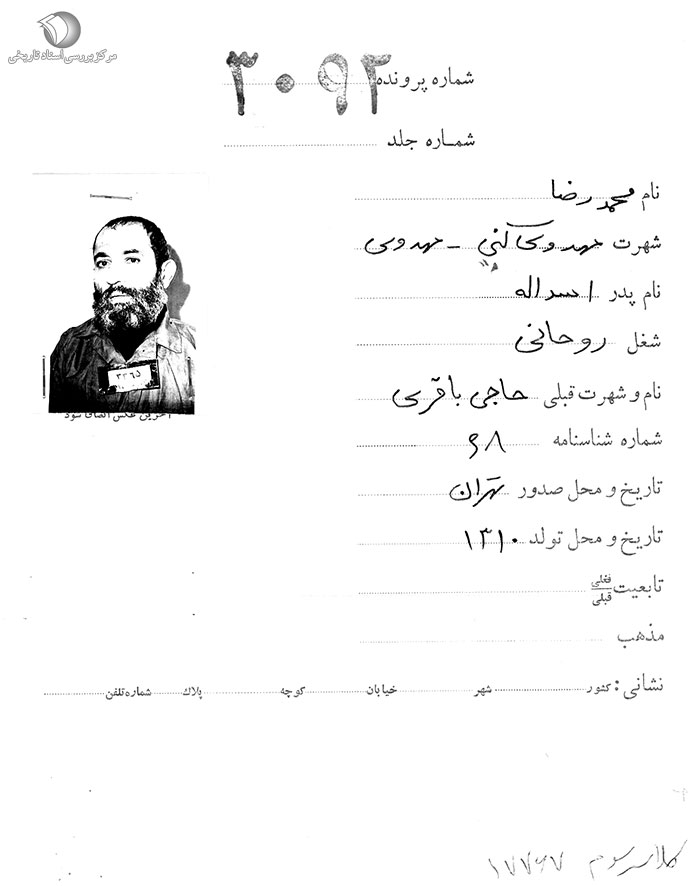 مرکز بررسی اسناد تاریخی
شماره پرونده ۳۰۹۲
شماره جلد
نام محمدرضا
شهرت مهدوی‌کنی - مهدوی
نام پدر اسداله
شغل روحانی
نام و شهرت قبلی حاجی باقری
شماره شناسنامه ۶۸
تاریخ و محل صدور تهران
تاریخ و محل تولد ۱۳۱۰
تابعیت فعلی قبلی
مذهب
نشانی: کشور شهر خیابان کوچه پلاک شماره تلفن
۳۳۶۵
آخرین عکس الصاق شود
کلاسر سوم ۱۷۷۶۷